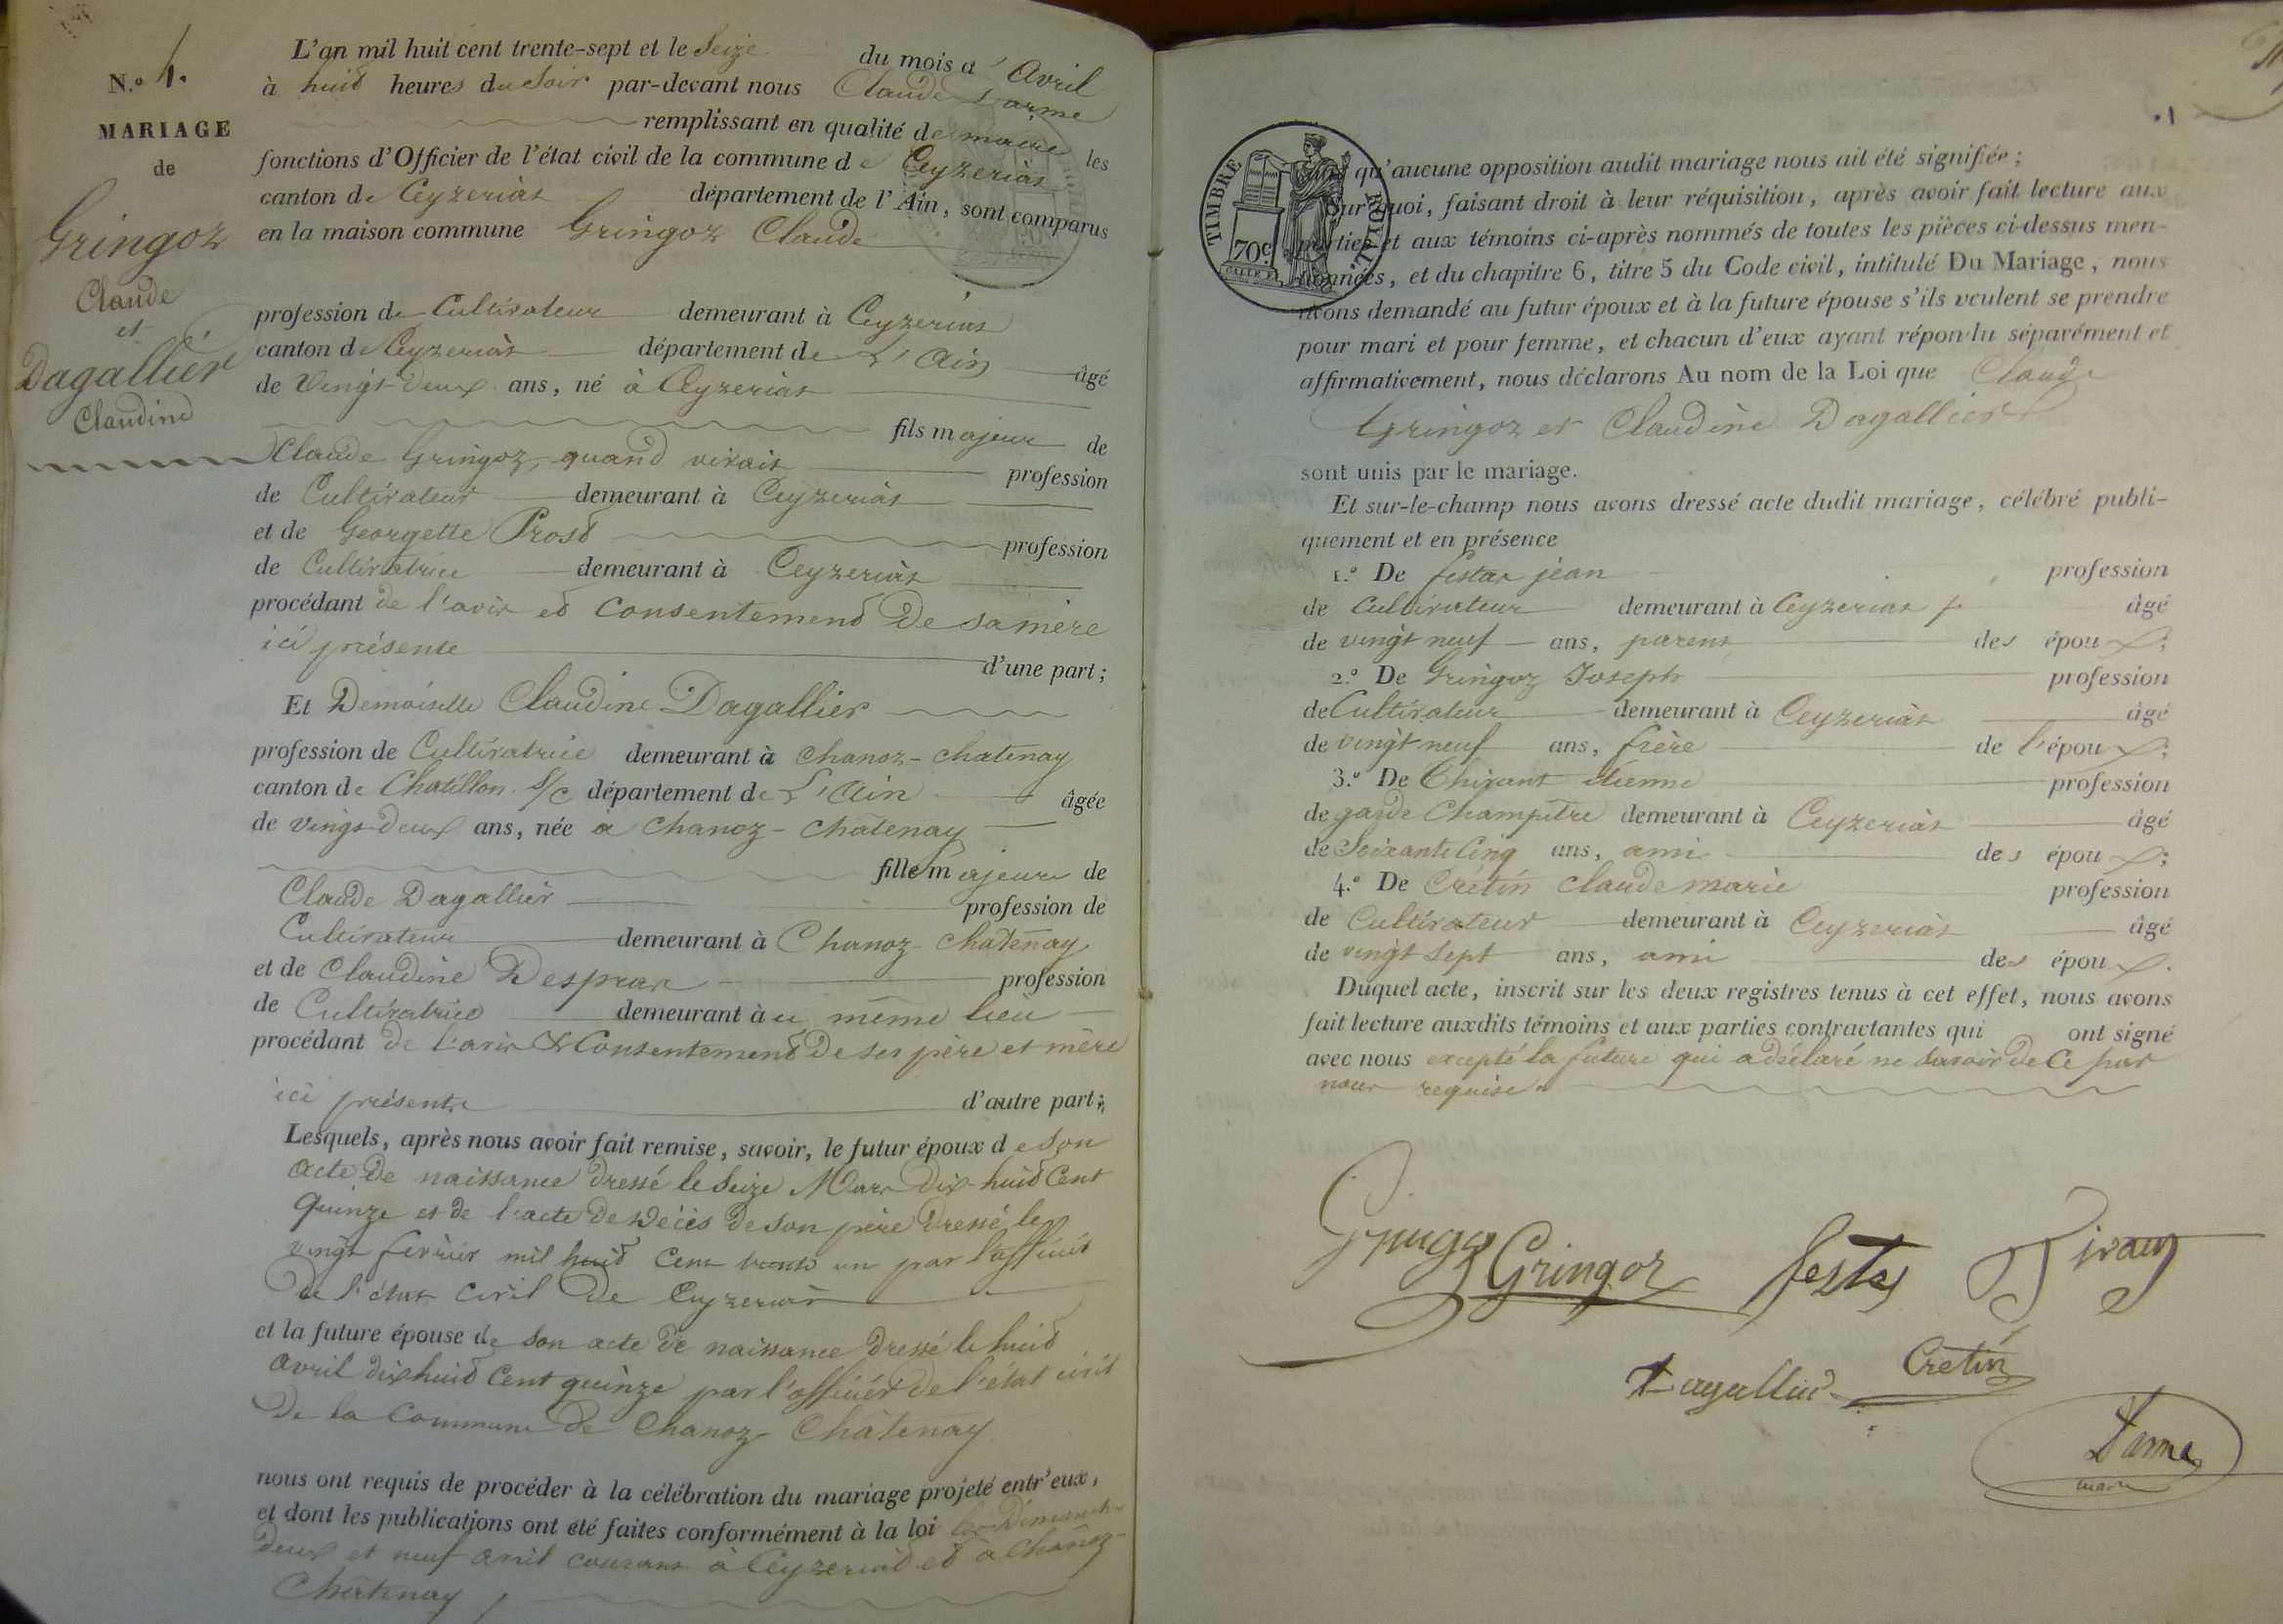 N.o 4.
MARIAGE
de
Gringoz
Claude
et
Dagallier
Claudine
L'an mil huit cent trente-sept et le Seize du mois d'Avril
à huit heures du Soir par-devant nous Claude Darme
remplissant en qualité de maire les
fonctions d'Officier de l'état civil de la commune de Ceyzeriat
canton de Ceyzeriat département de l'Ain, sont comparus
en la maison commune Gringoz Claude
profession de Cultivateur demeurant à Ceyzeriat
canton de Ceyzeriat département de L'Ain âgé
de Vingt Deux ans, né à Ceyzeriat
fils majeur de
Claude Gringoz, quand vivait profession
de Cultivateur demeurant à Ceyzeriat
et de Georgette Prost profession
de Cultivatrice demeurant à Ceyzeriat
procédant de l'avis et Consentement De sa mère
ici présente d'une part;
Et Demoiselle Claudine Dagallier
profession de Cultivatrice demeurant à Chanoz-chatenay
canton de Chatillon s/c département de L'Ain âgée
de vingt-deux ans, née à Chanoz-châtenay
fille majeure de
Claude Dagallier profession de
Cultivateur demeurant à Chanoz-Chatenay
et de Claudine Desprar profession
de Cultivatrice demeurant au même lieu
procédant de l'avis & Consentement De ses père et mère
ici présents d'autre part;
Lesquels, après nous avoir fait remise, savoir, le futur époux de son
acte De naissance Dressé le Seize Mars Dix-huit Cent
Quinze et de l'acte De Décès De son père Dressé le
vingt fevrier mil huit Cent trente un par l'officier
De l'état Civil De Ceyzeriat
et la future épouse de son acte de naissance Dressé le huit
Avril dix huit Cent quinze par l'officier De l'état civil
De la Commune De Chanoz-Châtenay
nous ont requis de procéder à la célébration du mariage projeté entr'eux,
et dont les publications ont été faites conformément à la loi les Dimanche
Deux et neuf avril courant à Ceyzeriat et à Chanoz-
Chatenay,
TIMBRE ROYAL
70c
qu'aucune opposition audit mariage nous ait été signifiée;
Sur quoi, faisant droit à leur réquisition, après avoir fait lecture aux
parties et aux témoins ci-après nommés de toutes les pièces ci-dessus men-
tionnées, et du chapitre 6, titre 5 du Code civil, intitulé Du Mariage, nous
avons demandé au futur époux et à la future épouse s'ils veulent se prendre
pour mari et pour femme, et chacun d'eux ayant répondu séparément et
affirmativement, nous déclarons Au nom de la Loi que Claude
Gringoz et Claudine Dagallier
sont unis par le mariage.
Et sur-le-champ nous avons dressé acte dudit mariage, célébré publi-
quement et en présence
1.o De festas jean profession
de Cultivateur demeurant à Ceyzeriat âgé
de vingt neuf ans, parent des époux;
2.o De Gringoz Joseph profession
de Cultivateur demeurant à Ceyzeriat âgé
de vingt neuf ans, frère de l'époux;
3.o De Chirant étienne profession
de garde Champêtre demeurant à Ceyzeriat âgé
de Soixante Cinq ans, ami des époux;
4.o De Crétin Claude marie profession
de Cultivateur demeurant à Ceyzeriat âgé
de vingt Sept ans, ami des époux.
Duquel acte, inscrit sur les deux registres tenus à cet effet, nous avons
fait lecture auxdits témoins et aux parties contractantes qui ont signé
avec nous excepté la future qui a déclaré ne Savoir De Ce par
nous requise.
Gringoz festas
Dagallier Cretin
Darme
maire